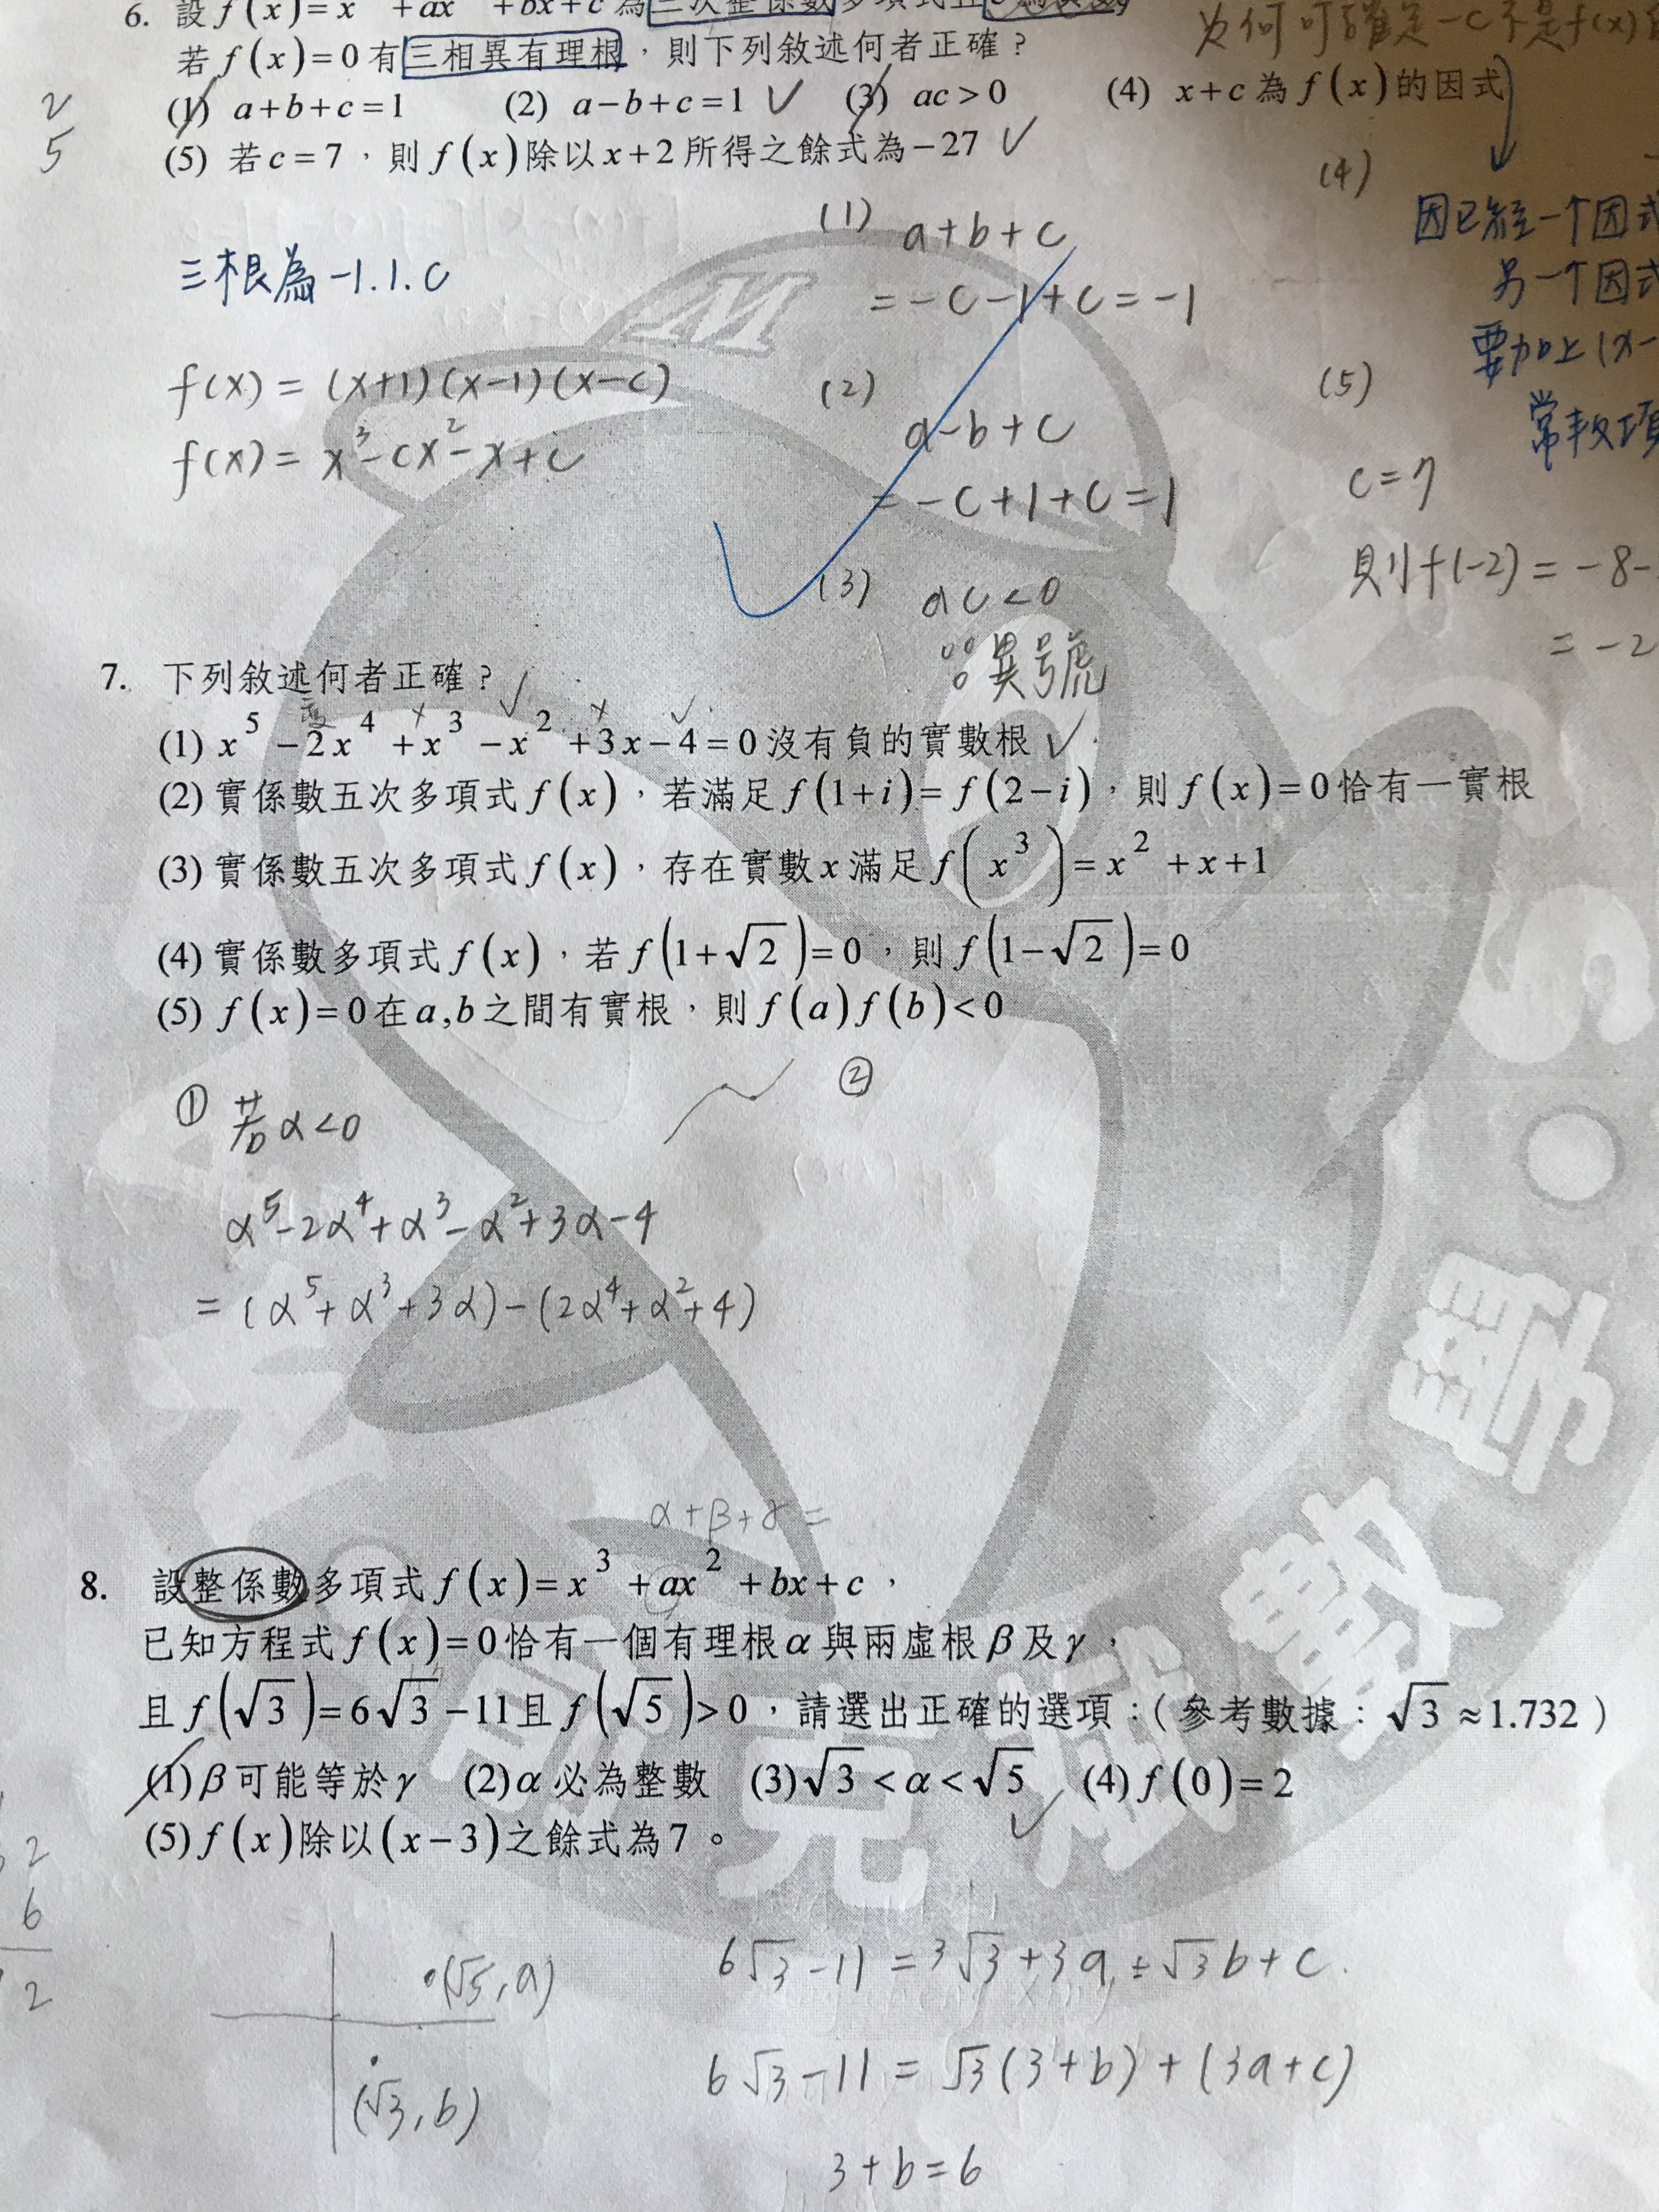 6. 設 f(x)=x +ax +bx+c 為三次整係數多項式且
為何可確定-c不是f(x)
若 f(x)=0 有三相異有理根，則下列敘述何者正確？
(1) a+b+c=1 (2) a-b+c=1 ✓ (3) ac>0 (4) x+c 為 f(x) 的因式
2
5
(5) 若 c=7，則 f(x) 除以 x+2 所得之餘式為 -27 ✓
三根為 -1.1.c
f(x) = (x+1)(x-1)(x-c)
f(x) = x³-cx²-x+c
(1) a+b+c
= -c-1+c = -1
(2)
a-b+c
= -c+1+c = 1
(3) ac<0
∵異號
(4)
因已經一个因式
另一个因式
要加上(x-
常數項
(5)
c=7
則f(-2) = -8-
= -2
7. 下列敘述何者正確？
(1) x⁵-2x⁴+x³-x²+3x-4=0 沒有負的實數根 ✓
(2) 實係數五次多項式 f(x)，若滿足 f(1+i)=f(2-i)，則 f(x)=0 恰有一實根
(3) 實係數五次多項式 f(x)，存在實數 x 滿足 f(x³)=x²+x+1
(4) 實係數多項式 f(x)，若 f(1+√2)=0，則 f(1-√2)=0
(5) f(x)=0 在 a,b 之間有實根，則 f(a)f(b)<0
① 若α<0
②
α⁵-2α⁴+α³-α²+3α-4
= (α⁵+α³+3α)-(2α⁴+α²+4)
α+β+γ=
8. 設整係數多項式 f(x)=x³+ax²+bx+c，
已知方程式 f(x)=0 恰有一個有理根 α 與兩虛根 β 及 γ，
且 f(√3)=6√3-11 且 f(√5)>0，請選出正確的選項：（參考數據：√3≈1.732）
(1) β 可能等於 γ (2) α 必為整數 (3) √3<α<√5 ✓ (4) f(0)=2
(5) f(x) 除以 (x-3) 之餘式為 7。
2
6
2
(√5,a)
(√3,b)
6√3-11 = 3√3+3a+√3b+c.
6√3-11 = √3(3+b)+(3a+c)
3+b=6